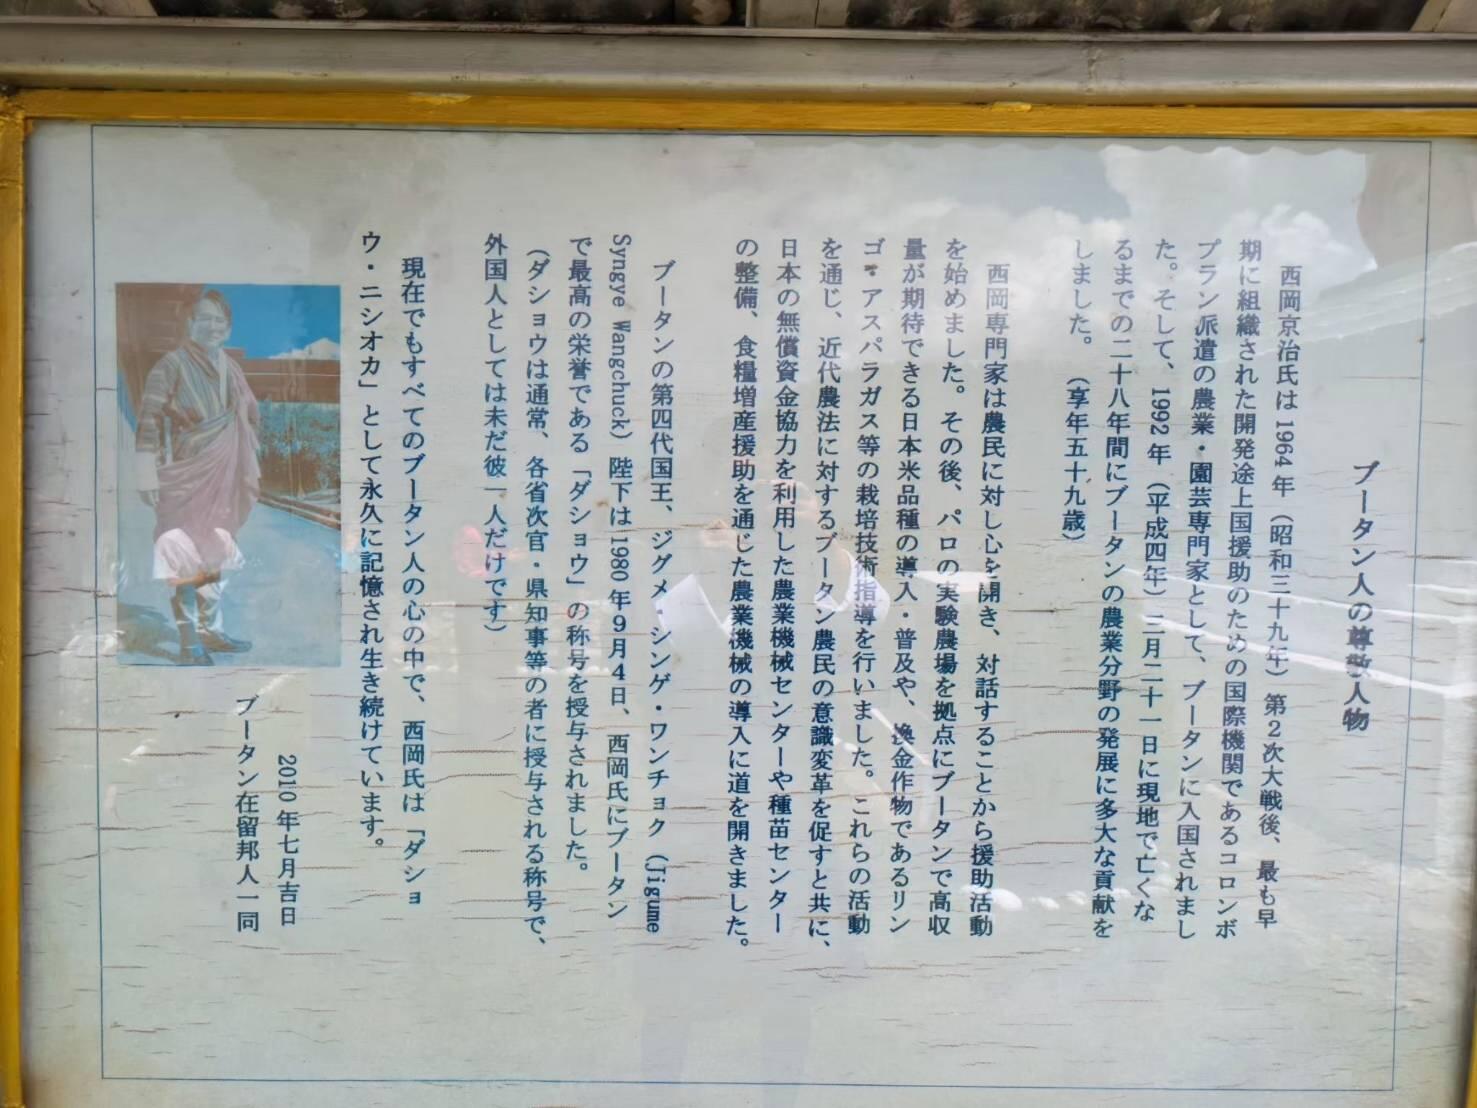 ブータン人の尊敬人物
西岡京治氏は1964年（昭和三十九年）第2次大戦後、最も早
期に組織された開発途上国援助のための国際機関であるコロンボ
プラン派遣の農業・園芸専門家として、ブータンに入国されまし
た。そして、1992年（平成四年）三月二十一日に現地で亡くな
るまでの二十八年間にブータンの農業分野の発展に多大な貢献を
しました。（享年五十九歳）
西岡専門家は農民に対し心を開き、対話することから援助活動
を始めました。その後、パロの実験農場を拠点にブータンで高収
量が期待できる日本米品種の導入・普及や、換金作物であるリン
ゴ・アスパラガス等の栽培技術指導を行いました。これらの活動
を通じ、近代農法に対するブータン農民の意識変革を促すと共に、
日本の無償資金協力を利用した農業機械センターや種苗センター
の整備、食糧増産援助を通じた農業機械の導入に道を開きました。
ブータンの第四代国王、ジグメ・シンゲ・ワンチョク（Jigume
Syngye Wangchuck）陛下は1980年9月4日、西岡氏にブータン
で最高の栄誉である「ダショウ」の称号を授与されました。
（ダショウは通常、各省次官・県知事等の者に授与される称号で、
外国人としては未だ彼一人だけです）
現在でもすべてのブータン人の心の中で、西岡氏は「ダショ
ウ・ニシオカ」として永久に記憶され生き続けています。
2010年七月吉日
ブータン在留邦人一同